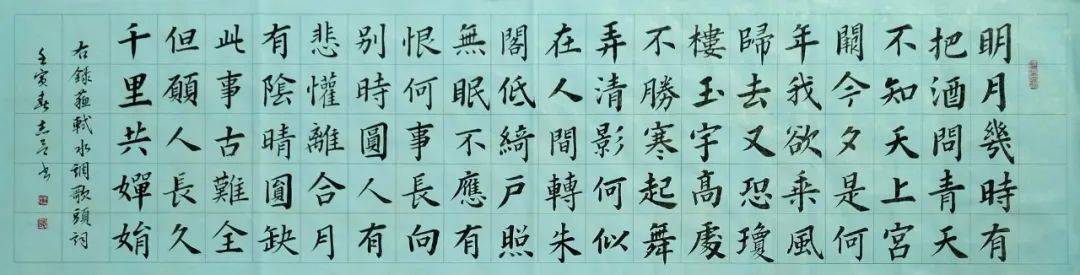 明月幾時有
把酒問青天
不知天上宮
闕今夕是何
年我欲乘風
歸去又恐瓊
樓玉宇高處
不勝寒起舞
弄清影何似
在人間轉朱
閣低綺戶照
無眠不應有
恨何事長向
別時圓人有
悲懽離合月
有陰晴圓缺
此事古難全
但願人長久
千里共嬋娟
右錄蘇軾水調歌頭詞
壬寅春志書